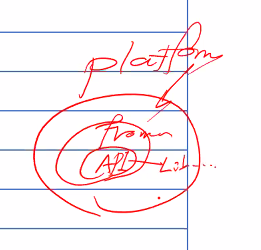 platform
frame
API Lib....